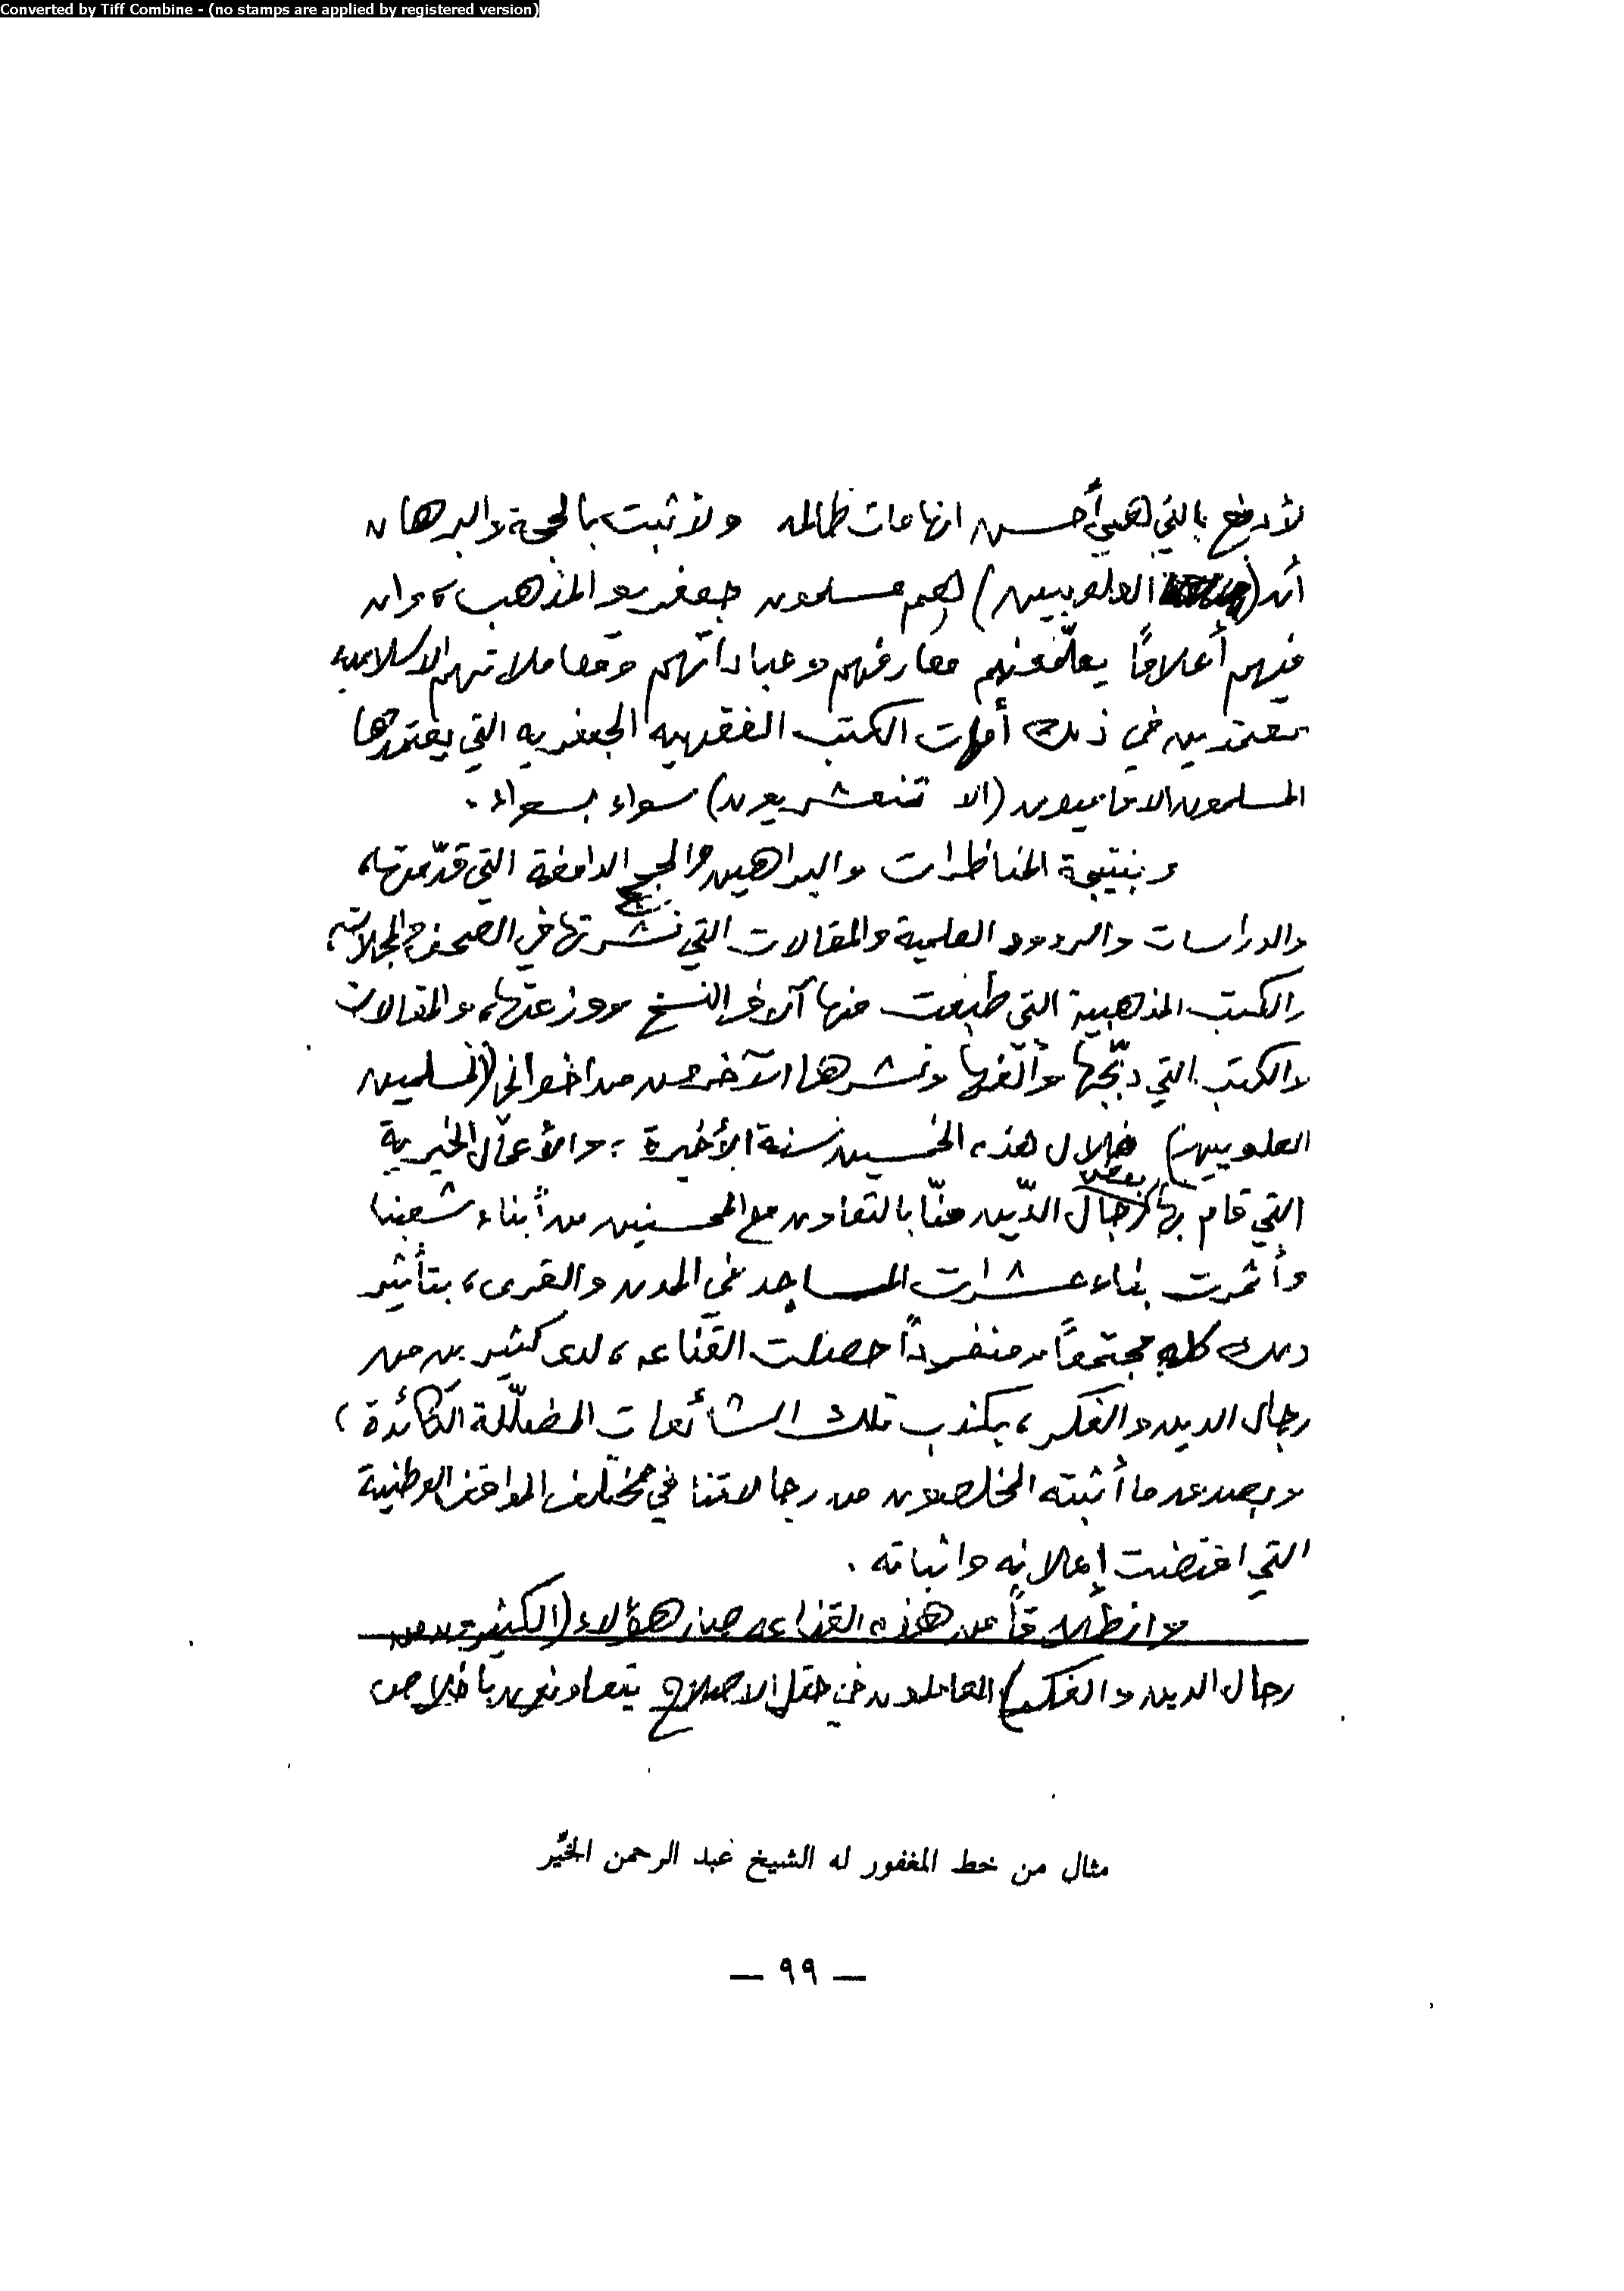 Converted by Tiff Combine - (no stamps are applied by registered version)
لأدفع بالتي هي أحسن اتهامات ظالمه ولأثبت بالحجة والبرهان
أن (العلويين) هم مسلمون جعفريو المذهب، وان
فيهم أعلامًا يعلّمونهم معارفهم وعباداتهم ومعاملاتهم الاسلاميه
معتمدين في ذلك أمهات الكتب الفقهيه الجعفريه التي يعتمدها
المسلمون الاماميون (الاثنعشريون) سواء بسواء.
وبنتيجة المناظرات والبراهين والحجج الدامغة التي قدّمتها،
والدراسات والردود العلمية والمقالات التي نشرتها في الصحف والمجلات،
والكتب المذهبية التي طبعت منها آلاف النسخ ووزعتها، والمقالات
والكتب التي دبّجها وألّفها ونشرها الآخرون من اخواني (المسلمين
العلويين) خلال هذه الخمسين سنة الأخيرة، والأعمال الخيرية
التي قام بها بعض رجال الدّين منّا بالتعاون مع المحسنين من أبناء شعبنا
وأثمرت بناء عشرات المساجد في المدن والقرى، بتأثير
ذلك كله مجتمعًا ومنفردًا حصلت القناعه، لدى كثيرين من
رجال الدين والفكر، بكذب تلك الشائعات المضلّلة الكائدة،
وبصدق ما أثبته المخلصون من رجالاتنا في مختلف المواقف الوطنية
التي اقتضت إعلانه واثباته.
وانطلاقًا من هذه القناعه صار هؤلاء (الكثيرون من
رجال الدين والفكر) العاملون في حقل الاصلاح يتعاونون باخلاص
مثال من خط المغفور له الشيخ عبد الرحمن الخيِّر
— ٩٩ —